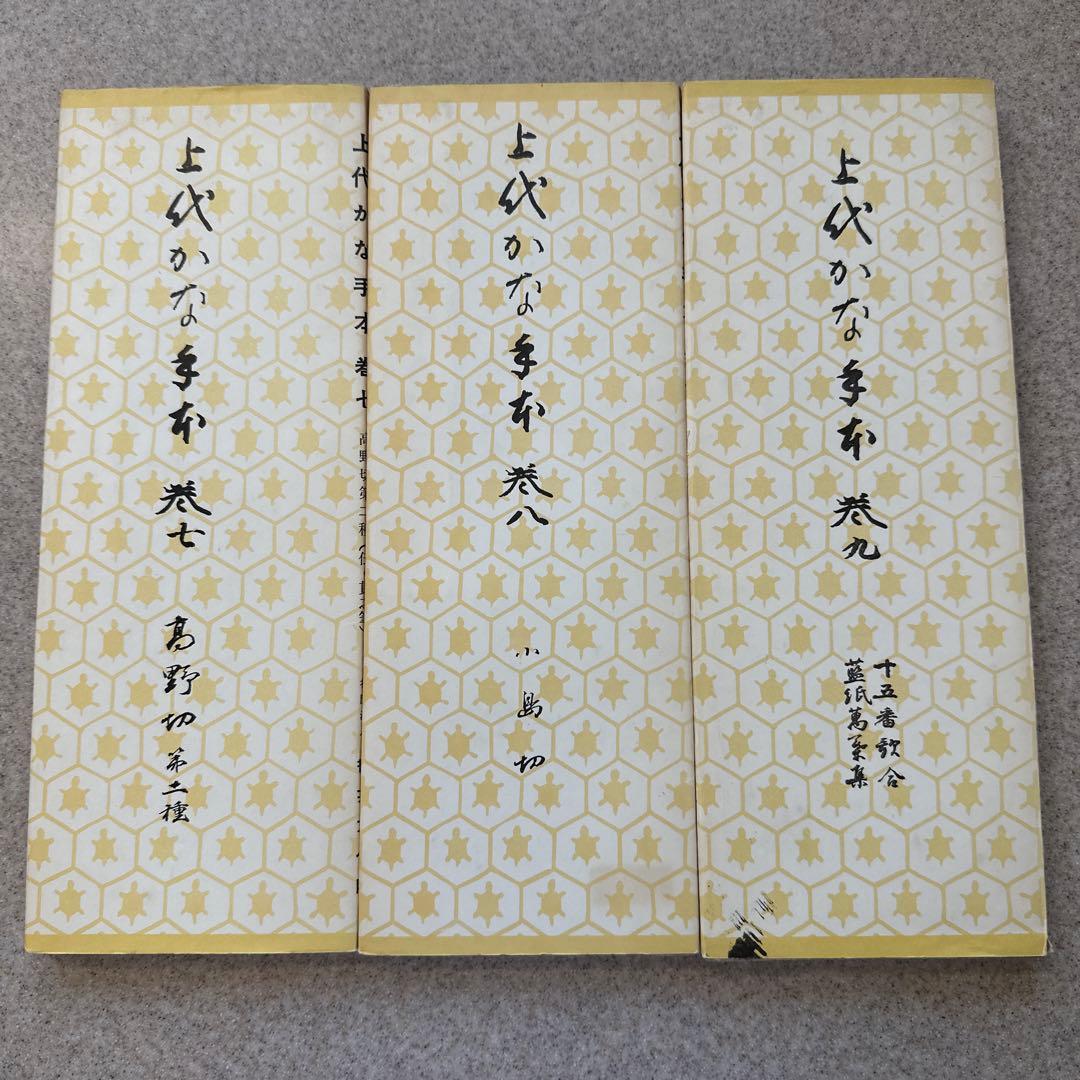 上代かな手本 巻七
高野切 第二種
上代かな手本 巻七 高野切第二種
上代かな手本 巻八
小島切
上代かな手本 巻九
十五番歌合
藍紙萬葉集